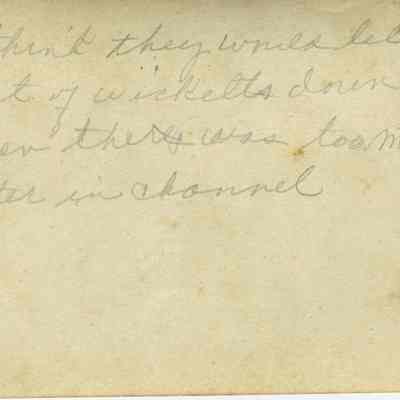 think they would let
t of wicketts down
en there was too m
ter in channel